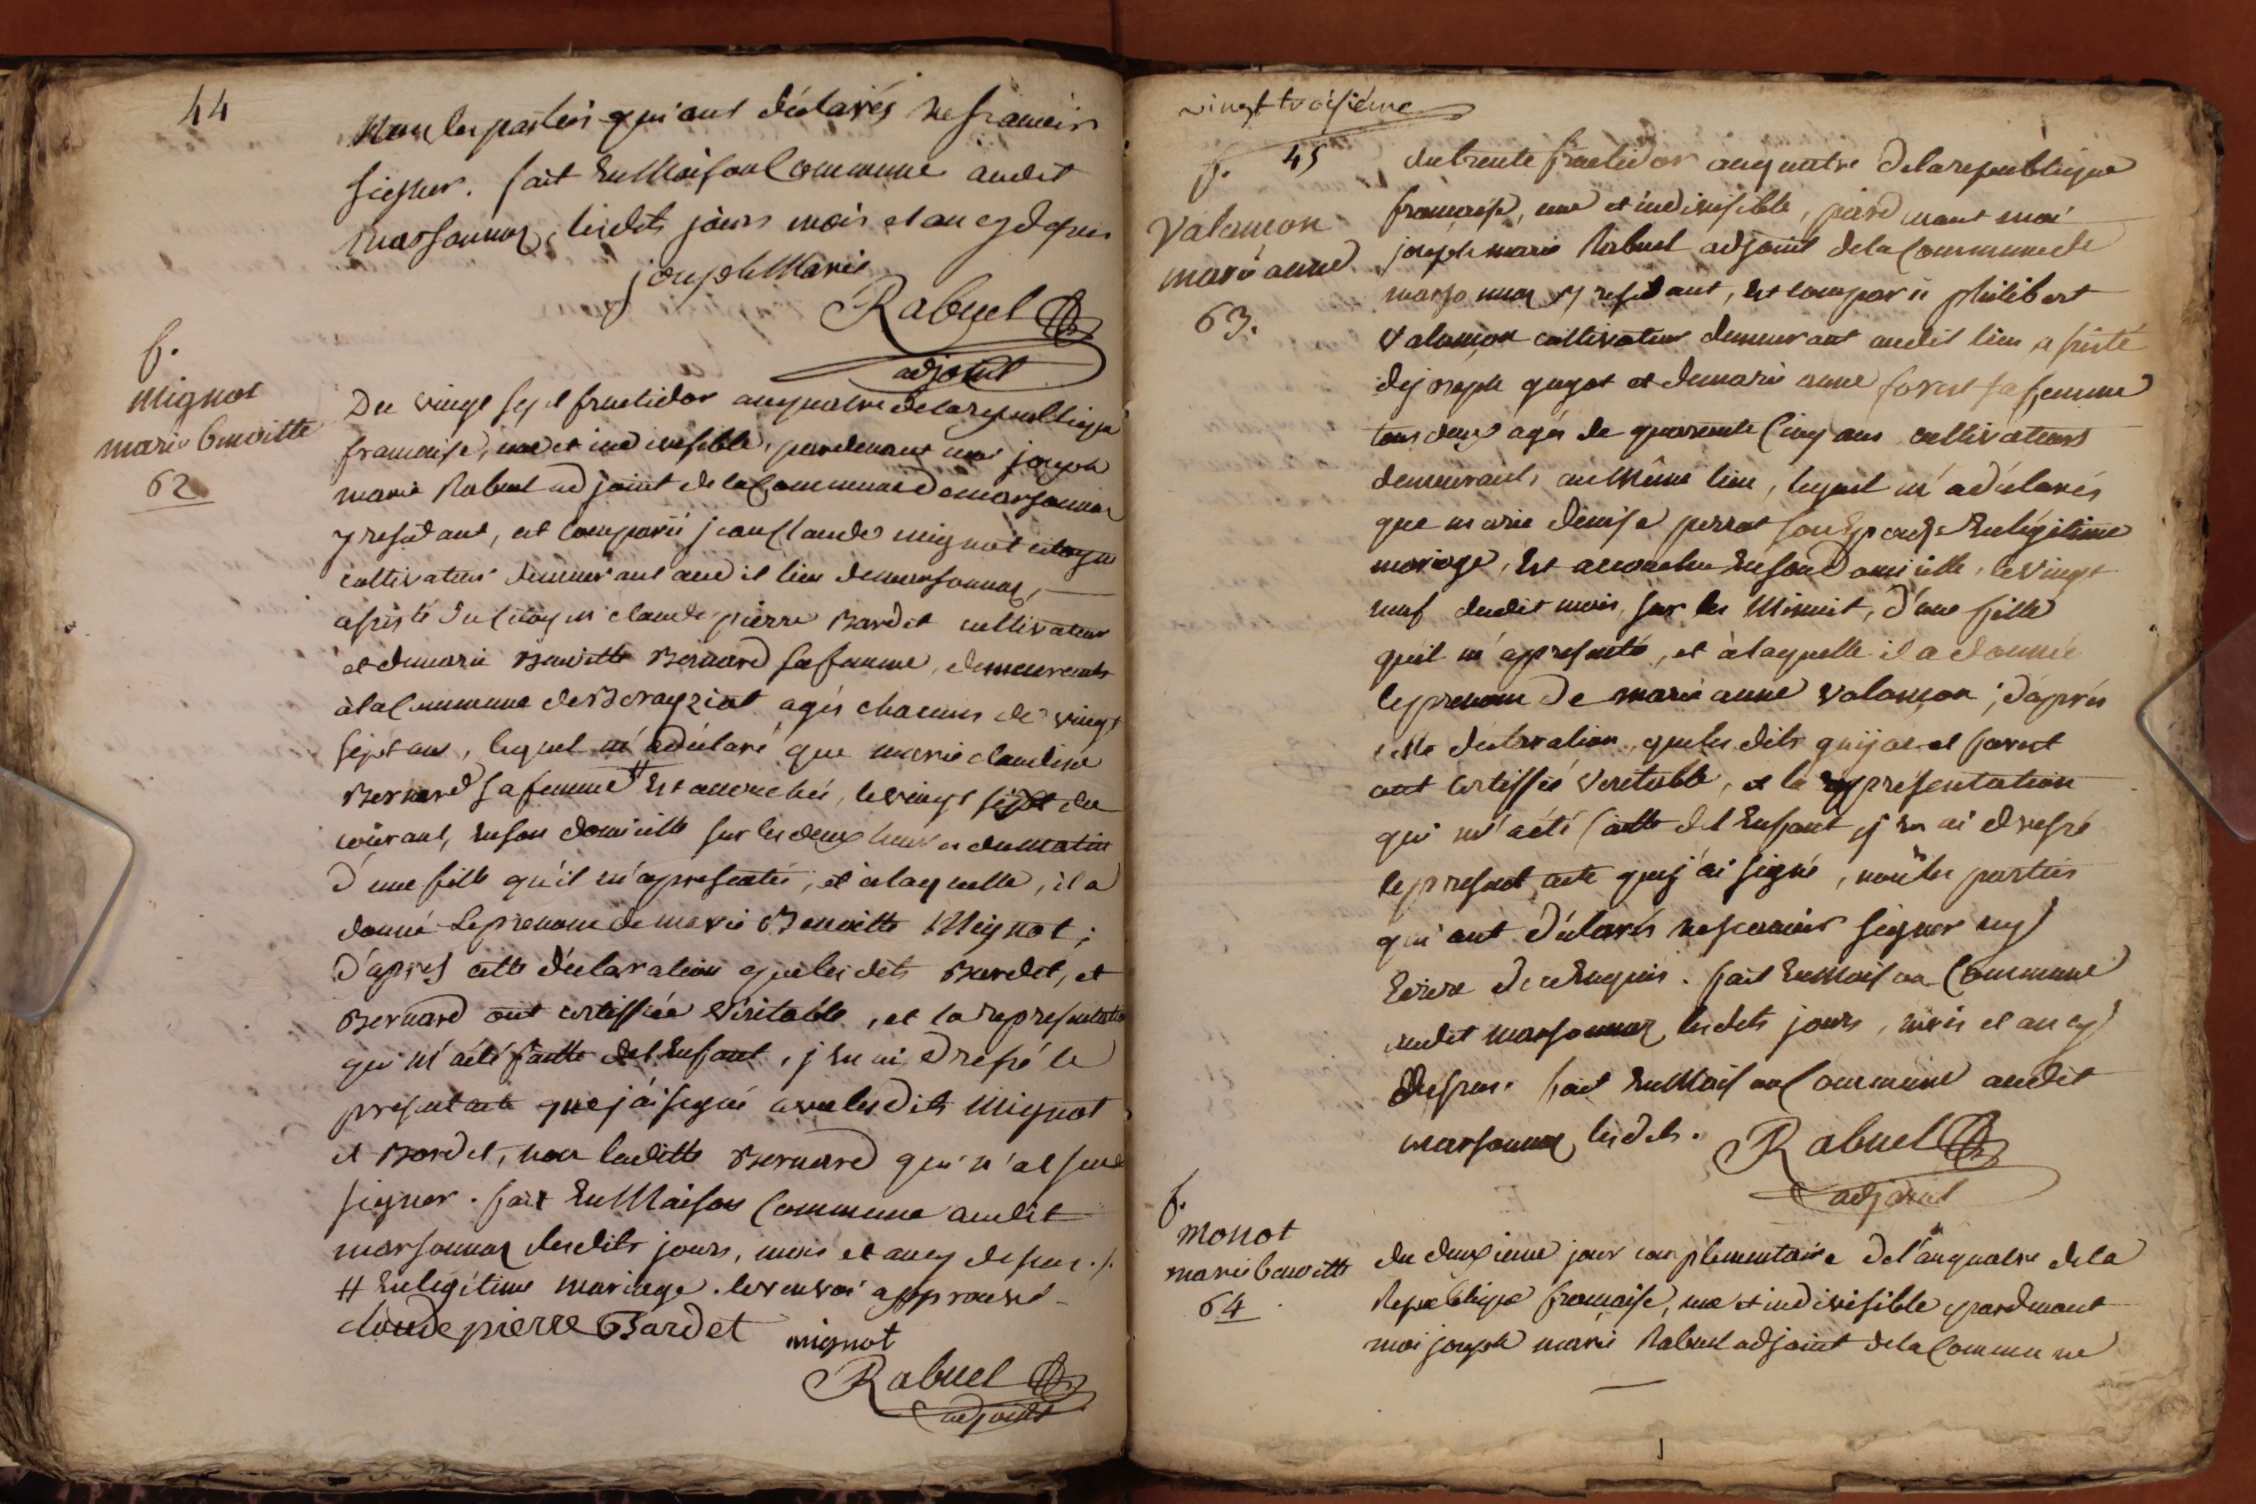 44
non les parties qui ont déclarés ne scavoir
signer. fait En Maison Commune audit
marsonnaz, lesdits jours mois et an cy desus
joseph Marie
Rabuel
adjoint
f.
mignot
marie benoitte
62
Du vingt sept fructidor an quatre de la republique
francaise, une et indivisible, pardevant moi joseph
marie Rabuel adjoint de la Commune de marsonnaz
y residant, est comparu jean Claude mignot citoyen
cultivateur demeurant audit lieu de marsonnaz,
assisté du Citoyen claude pierre Bardet cultivateur
et de marie Benoitte Bernard sa femme, demeurants
à la Commune de agés chacuns de vingt
sept ans, lequel m'a déclaré que marie claudine
Bernard sa femme # Est accouchée, le vingt sept du
courant, en son domicille sur les deux heures du matin
d'une fille qu'il m'a presentée, et à laquelle, il a
donné Le prenom de marie Benoitte Mignot ;
d'apres cette déclaration que les dits Bardet, et
Bernard ont certiffiée véritable, et la representation
qui m'a été faitte de l'Enfant, j'en ai dressé le
present acte que j'ai signé avec lesdits Mignot
et Bardet, non laditte Bernard qui n'a sçu
signer. fait En Maison Commune audit
marsonnaz lesdits jours, mois et an cy desus ./.
# En légitime mariage. le renvoi approuvé
claude pierre Bardet
mignot
Rabuel
adjoint
vingt troisiéme
45
f.
Valançon
marie anne
63.
du trente fructidor an quatre de la republique
francaise, une et indivisible, pardevant moi
joseph marie Rabuel adjoint de la Commune de
marsonnaz y residant, est comparu philibert
Valançon cultivateur demeurant audit lieu assisté
de joseph guyot et de marie anne forest sa femme
tous deux agés de quarante Cinq ans cultivateurs
demeurants au Même lieu, lequel m'a déclarés
que marie denise perrot son Epouse En légitime
mariage, Est accouchée En son domicille, le vingt
neuf dudit mois, sur les Minuit, d'une fille
qu'il m'a presenté, et à laquelle il a donnée
le prenom de marie anne valançon ; d'aprés
cette déclaration, que les dits guyot et forest
ont certiffié veritable, et la representation
qui m'a été faitte de l'Enfant j'en ai dressé
le present acte que j'ai signé, non les parties
qui ont déclarés ne scavoir signer ny
Ecrire de ce Enquis. fait En Maison Commune
audit marsonnaz lesdits jours, mois et an cy
desus. fait En Maison Commune audit
marsonnaz lesdits.
Rabuel
adjoint
f.
monot
marie benoitte
64
du deuxieme jour complementaire de l'an quatre de la
Republique francaise, une et indivisible pardevant
moi joseph marie Rabuel adjoint de la Commune